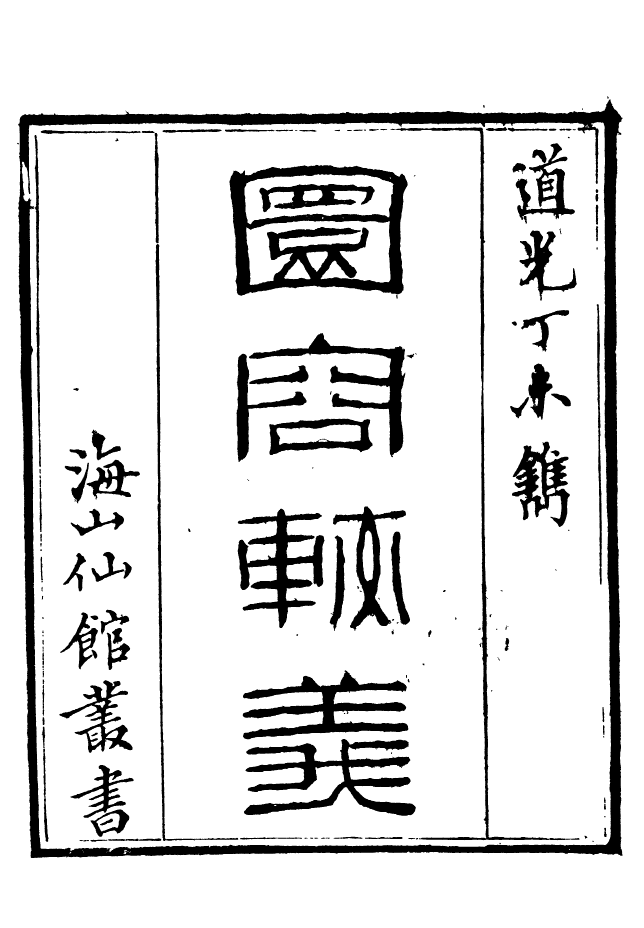 道光丁未鐫
圜容較義
海山仙館叢書